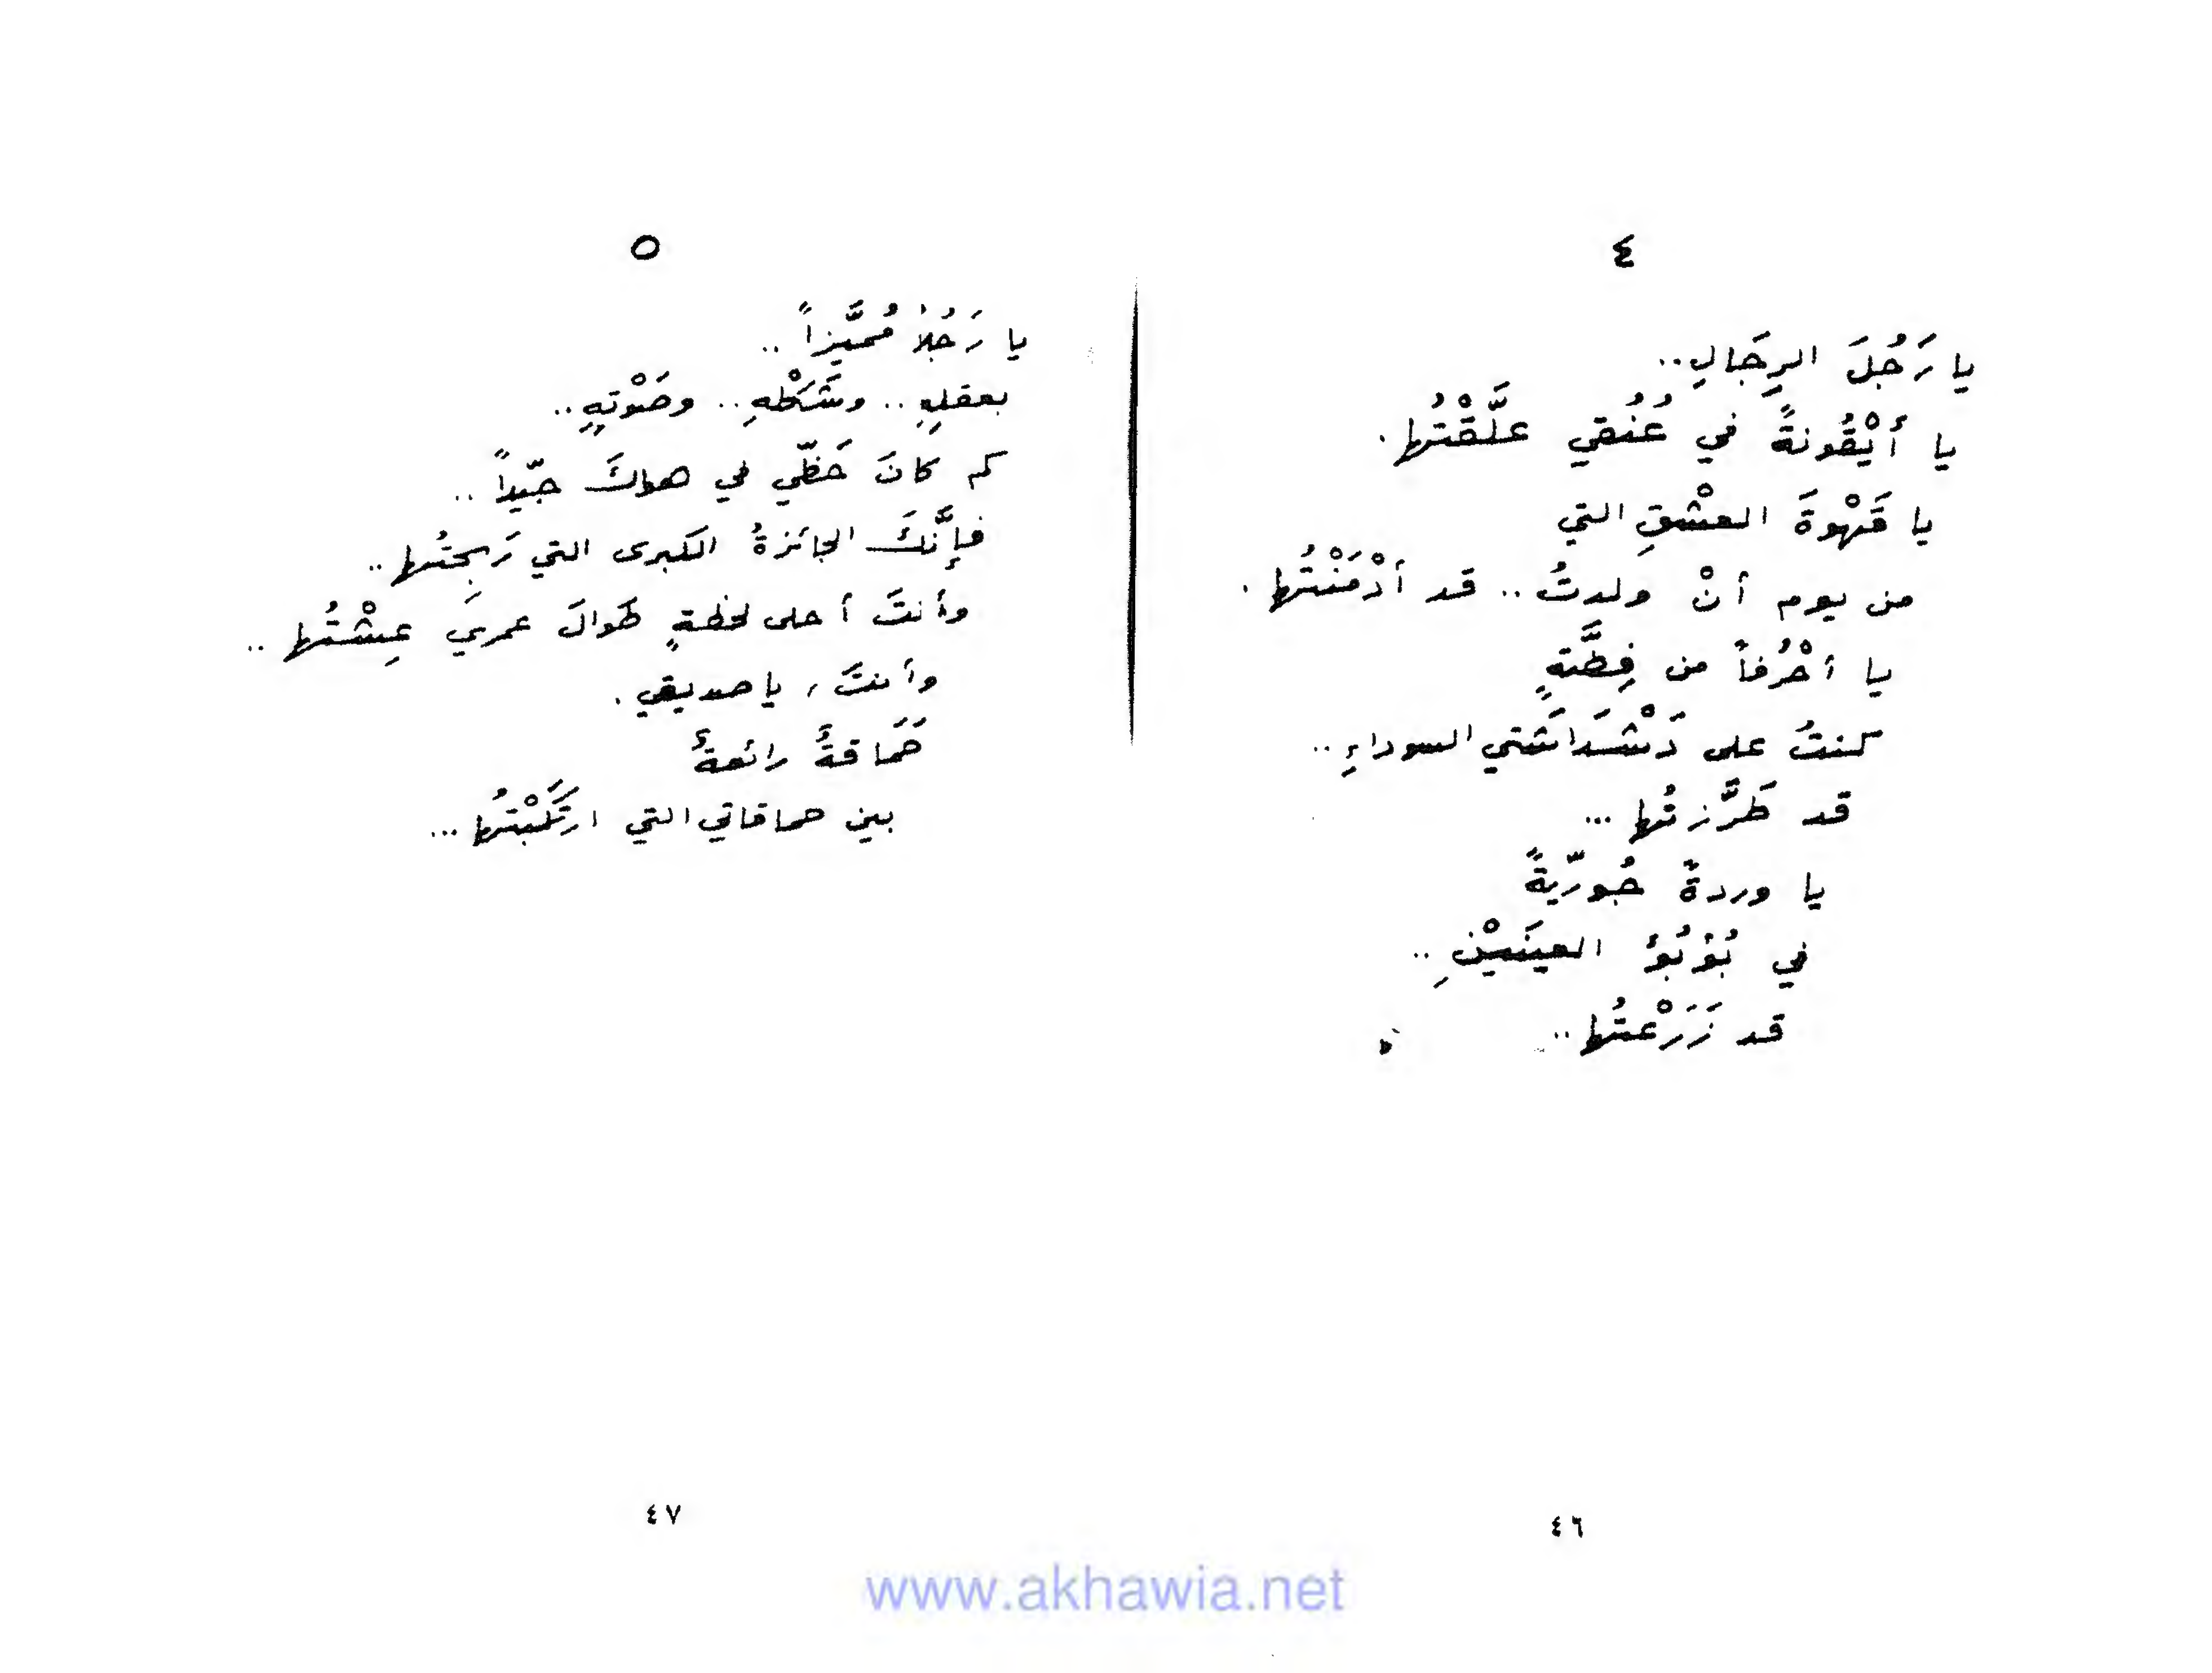 ٤
يا رَجُلَ الرِجَالِ..
يا أَيْقُونةً في عُنُقي عَلَّقْتُها.
يا قَهْوةَ العِشْقِ التي
من يوم أنْ ولدتُ.. قد أدْمَنْتُها.
يا أحْرُفاً من فِضَّةٍ
كنتُ على دَشْدَاشَتي السوداءِ..
قد طَرَّزتُها...
يا وردةً جُوريّةً
في بُؤبُؤ العينَيْنِ..
قد زَرَعْتُها..
٤٦
٥
يا رَجُلاً مُميَّزاً..
بعقلِهِ.. وشَكْلِهِ.. وصَوْتِهِ..
كم كانَ حَظّي في هواكَ جيّداً..
فإنَّكَ الجائزةُ الكبرى التي رَبِحتُها..
وأنتَ أحلى لحظةٍ طَوالَ عمري عِشْتُها..
وأنتَ، يا صديقي.
حَمَاقةٌ رائعةٌ
بين حماقاتي التي ارتَكَبْتُها...
٤٧
www.akhawia.net